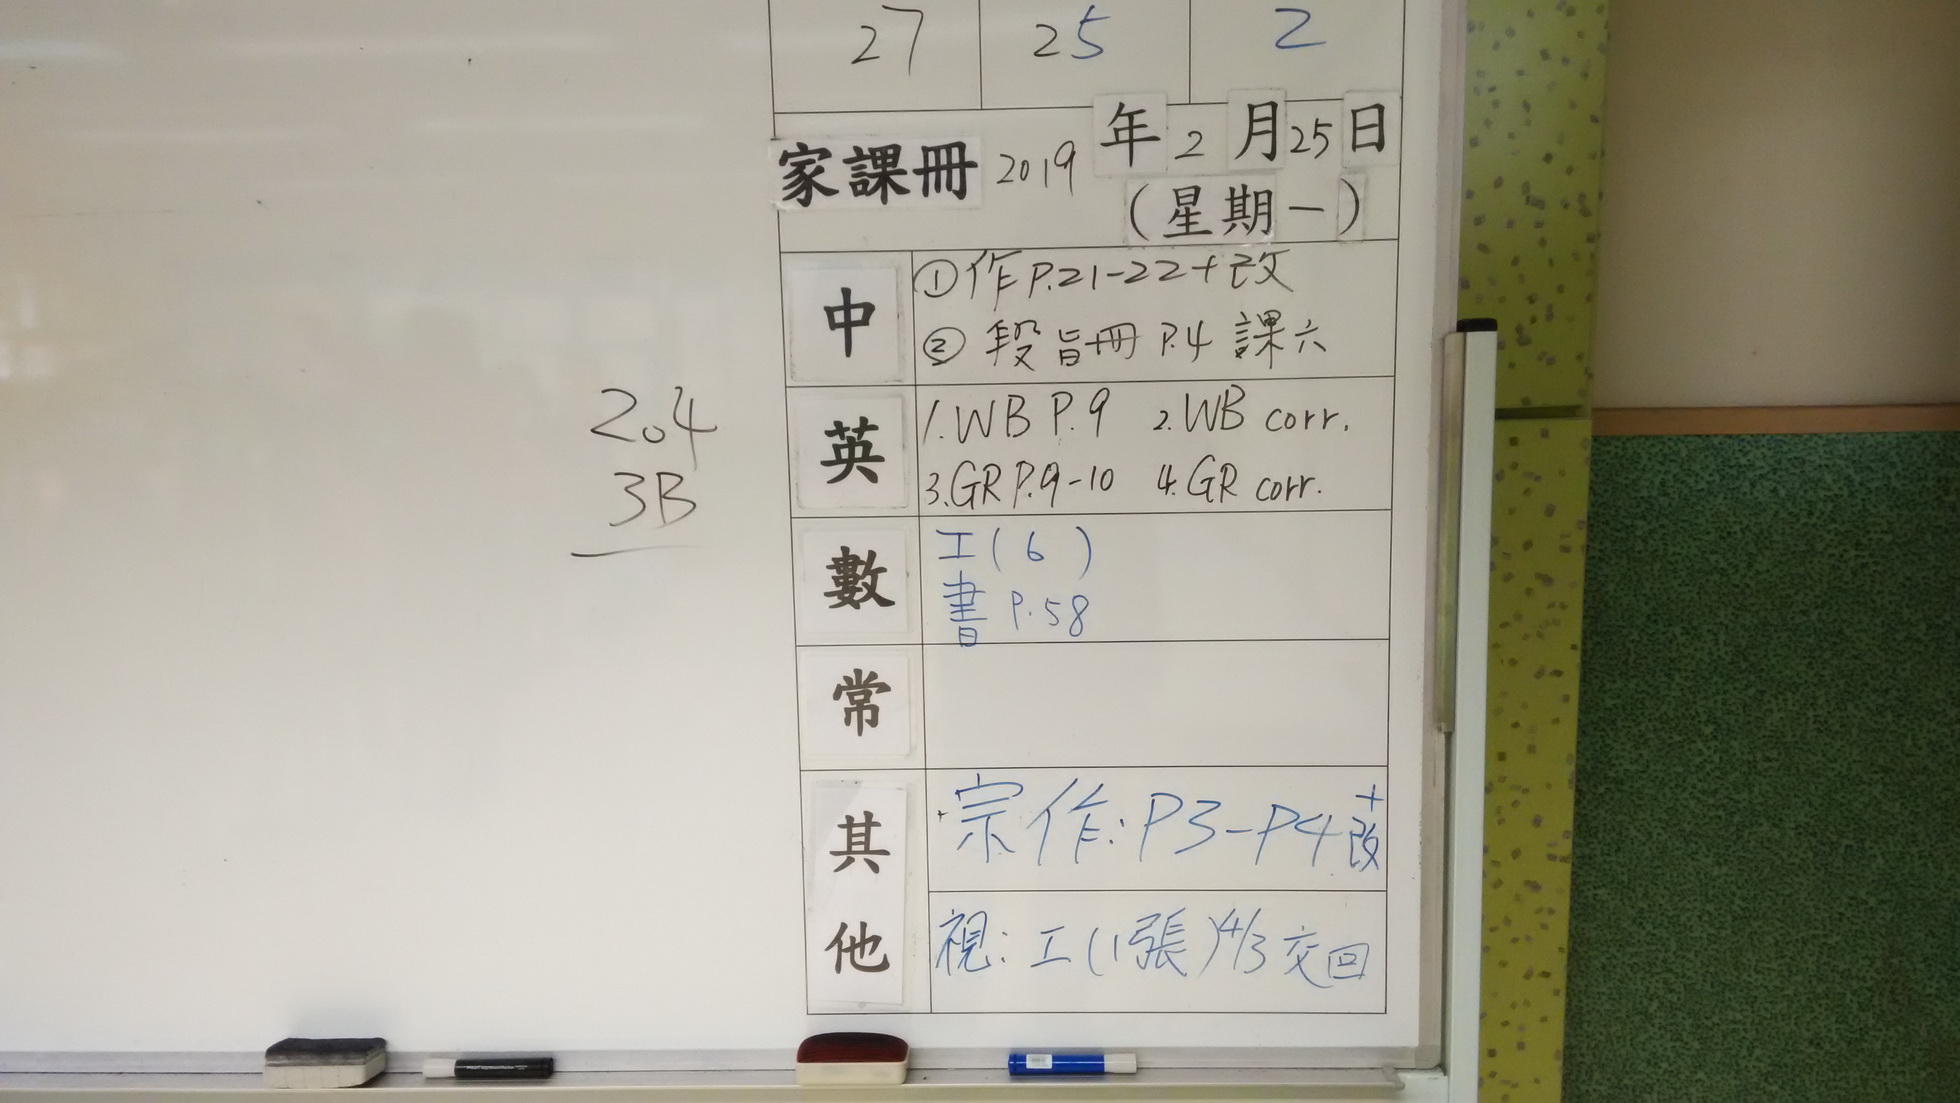 27 25 2
家課冊 2019 年 2 月 25 日
(星期一)
中
①作P.21-22+改
② 段旨冊 P.4 課六
英
1.WB P.9 2.WB corr.
3.GR P.9-10 4.GR corr.
數
工(6)
書 P.58
常
其他
宗作:P3-P4+改
視:工(1張)4/3交回
2.4
3B